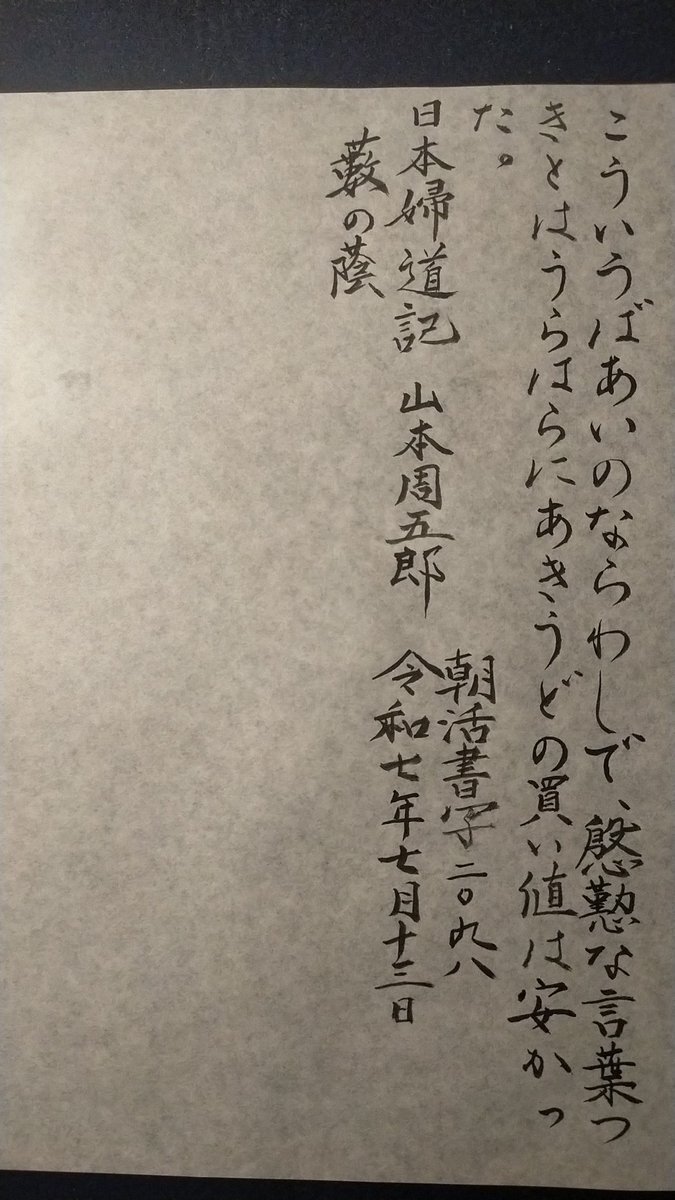 こういうばあいのならわしで、慇懃な言葉つ
きとはうらはらにあきうどの買い値は安かっ
た。
日本婦道記 山本周五郎
藪の蔭
朝活書写二〇九八
令和七年七月十三日